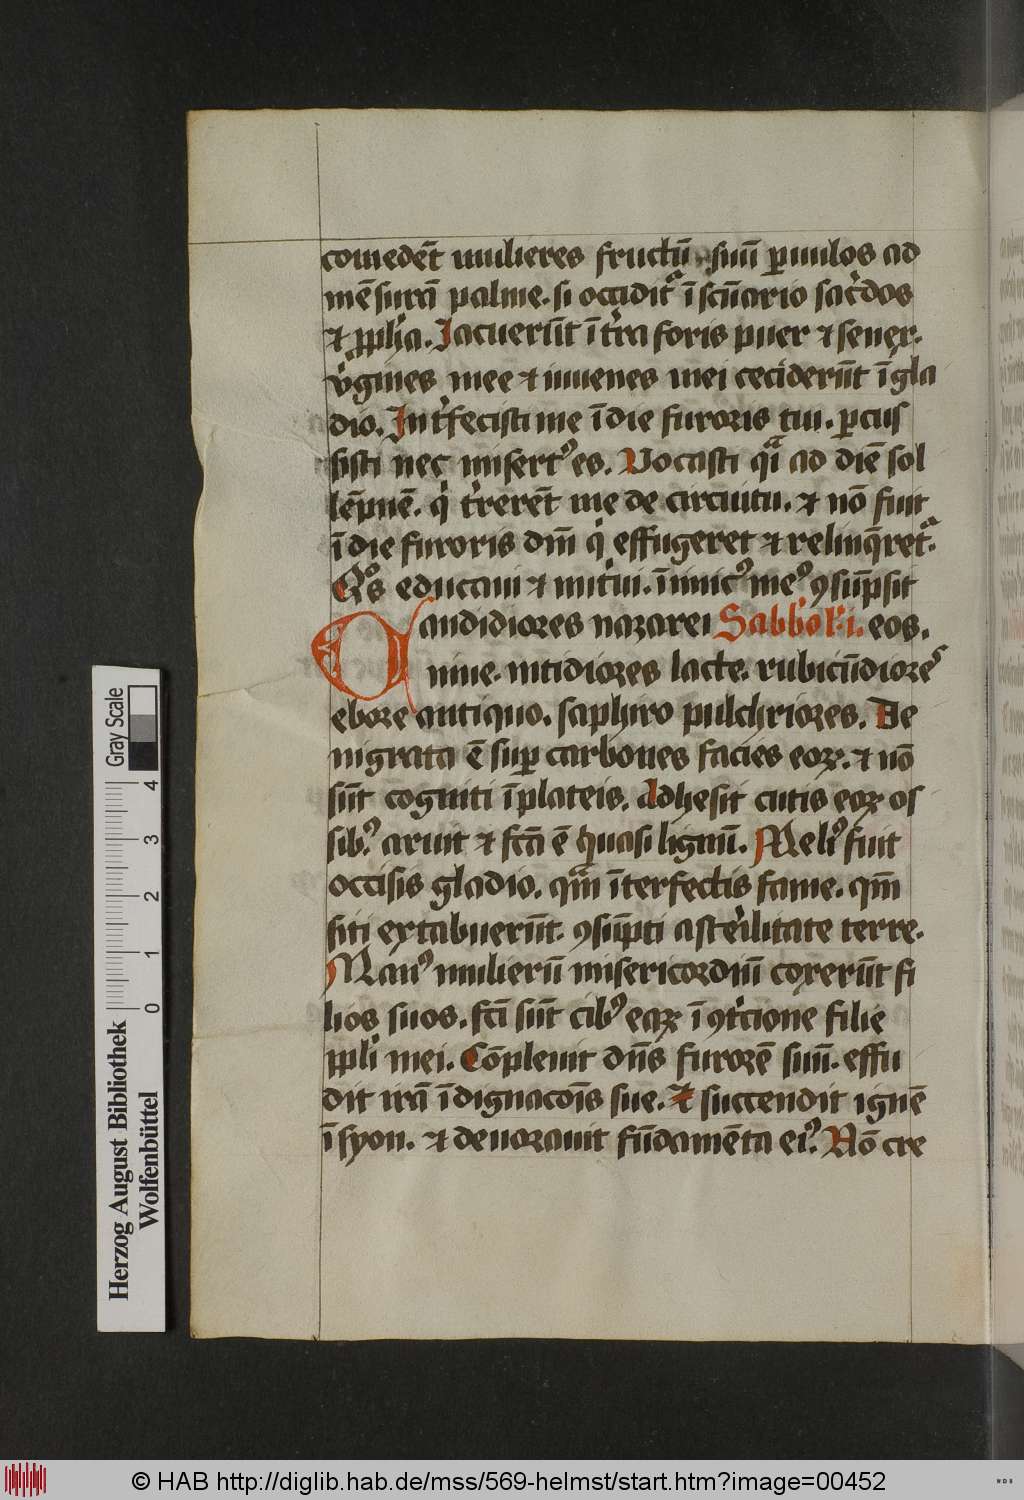 comedēt mulieres fructū suū ꝑuulos ad
mēsurā palme. si occidit᷑ ī scūario sac̓dos
⁊ ꝓph̓a. Jacuerūt ī t̓ra foris puer ⁊ sener.
v̓gines mee ⁊ iuuenes mei ceciderūt ī gla
dio. Int̓fecisti me ī die furoris tui. ꝑcus
sisti nec misertꝰ es. Uocasti qͣi ad diē sol
lēpnē. q̓ t̓rerēt me de circuitu. ⁊ nō fuit
ī die furoris dn̄i q̓ effugeret ⁊ relinq̄ret᷑.
Qͦs educaui ⁊ nut̓ui. īimicꝰ meꝰ ꝯsūpsit
Candidiores nazarei Sabb'ol'. i. eos.
niue. nitidiores lacte. rubicūdiores
ebore antiquo. saphiro pulchriores. De
nigrata ē suꝑ carbones facies eoꝝ. ⁊ nō
sūt cogniti ī plateis. Adhesit cutis eoꝝ os
sibꝰ. aruit ⁊ fc̄a ē quasi lignū. Meliꝰ fuit
occisis gladio. qͣm īterfectis fame. qm̄
siti extabuerūt. ꝯsūpti a ste̓ilitate terre.
Manꝰ mulierū misericordiū coxerūt fi
lios suos. fc̄i sūt cibꝰ eaꝝ ī ꝯt̓cione filie
ppl̓i mei. Cōpleuit dn̄s furorē suū. effu
dit irā īdignacōis sue. ⁊ succendit ignē
ī syon. ⁊ deuorauit fūdamēta eiꝰ. Nō cre
Gray Scale
0 1 2 3 4
Herzog August Bibliothek
Wolfenbüttel
© HAB http://diglib.hab.de/mss/569-helmst/start.htm?image=00452